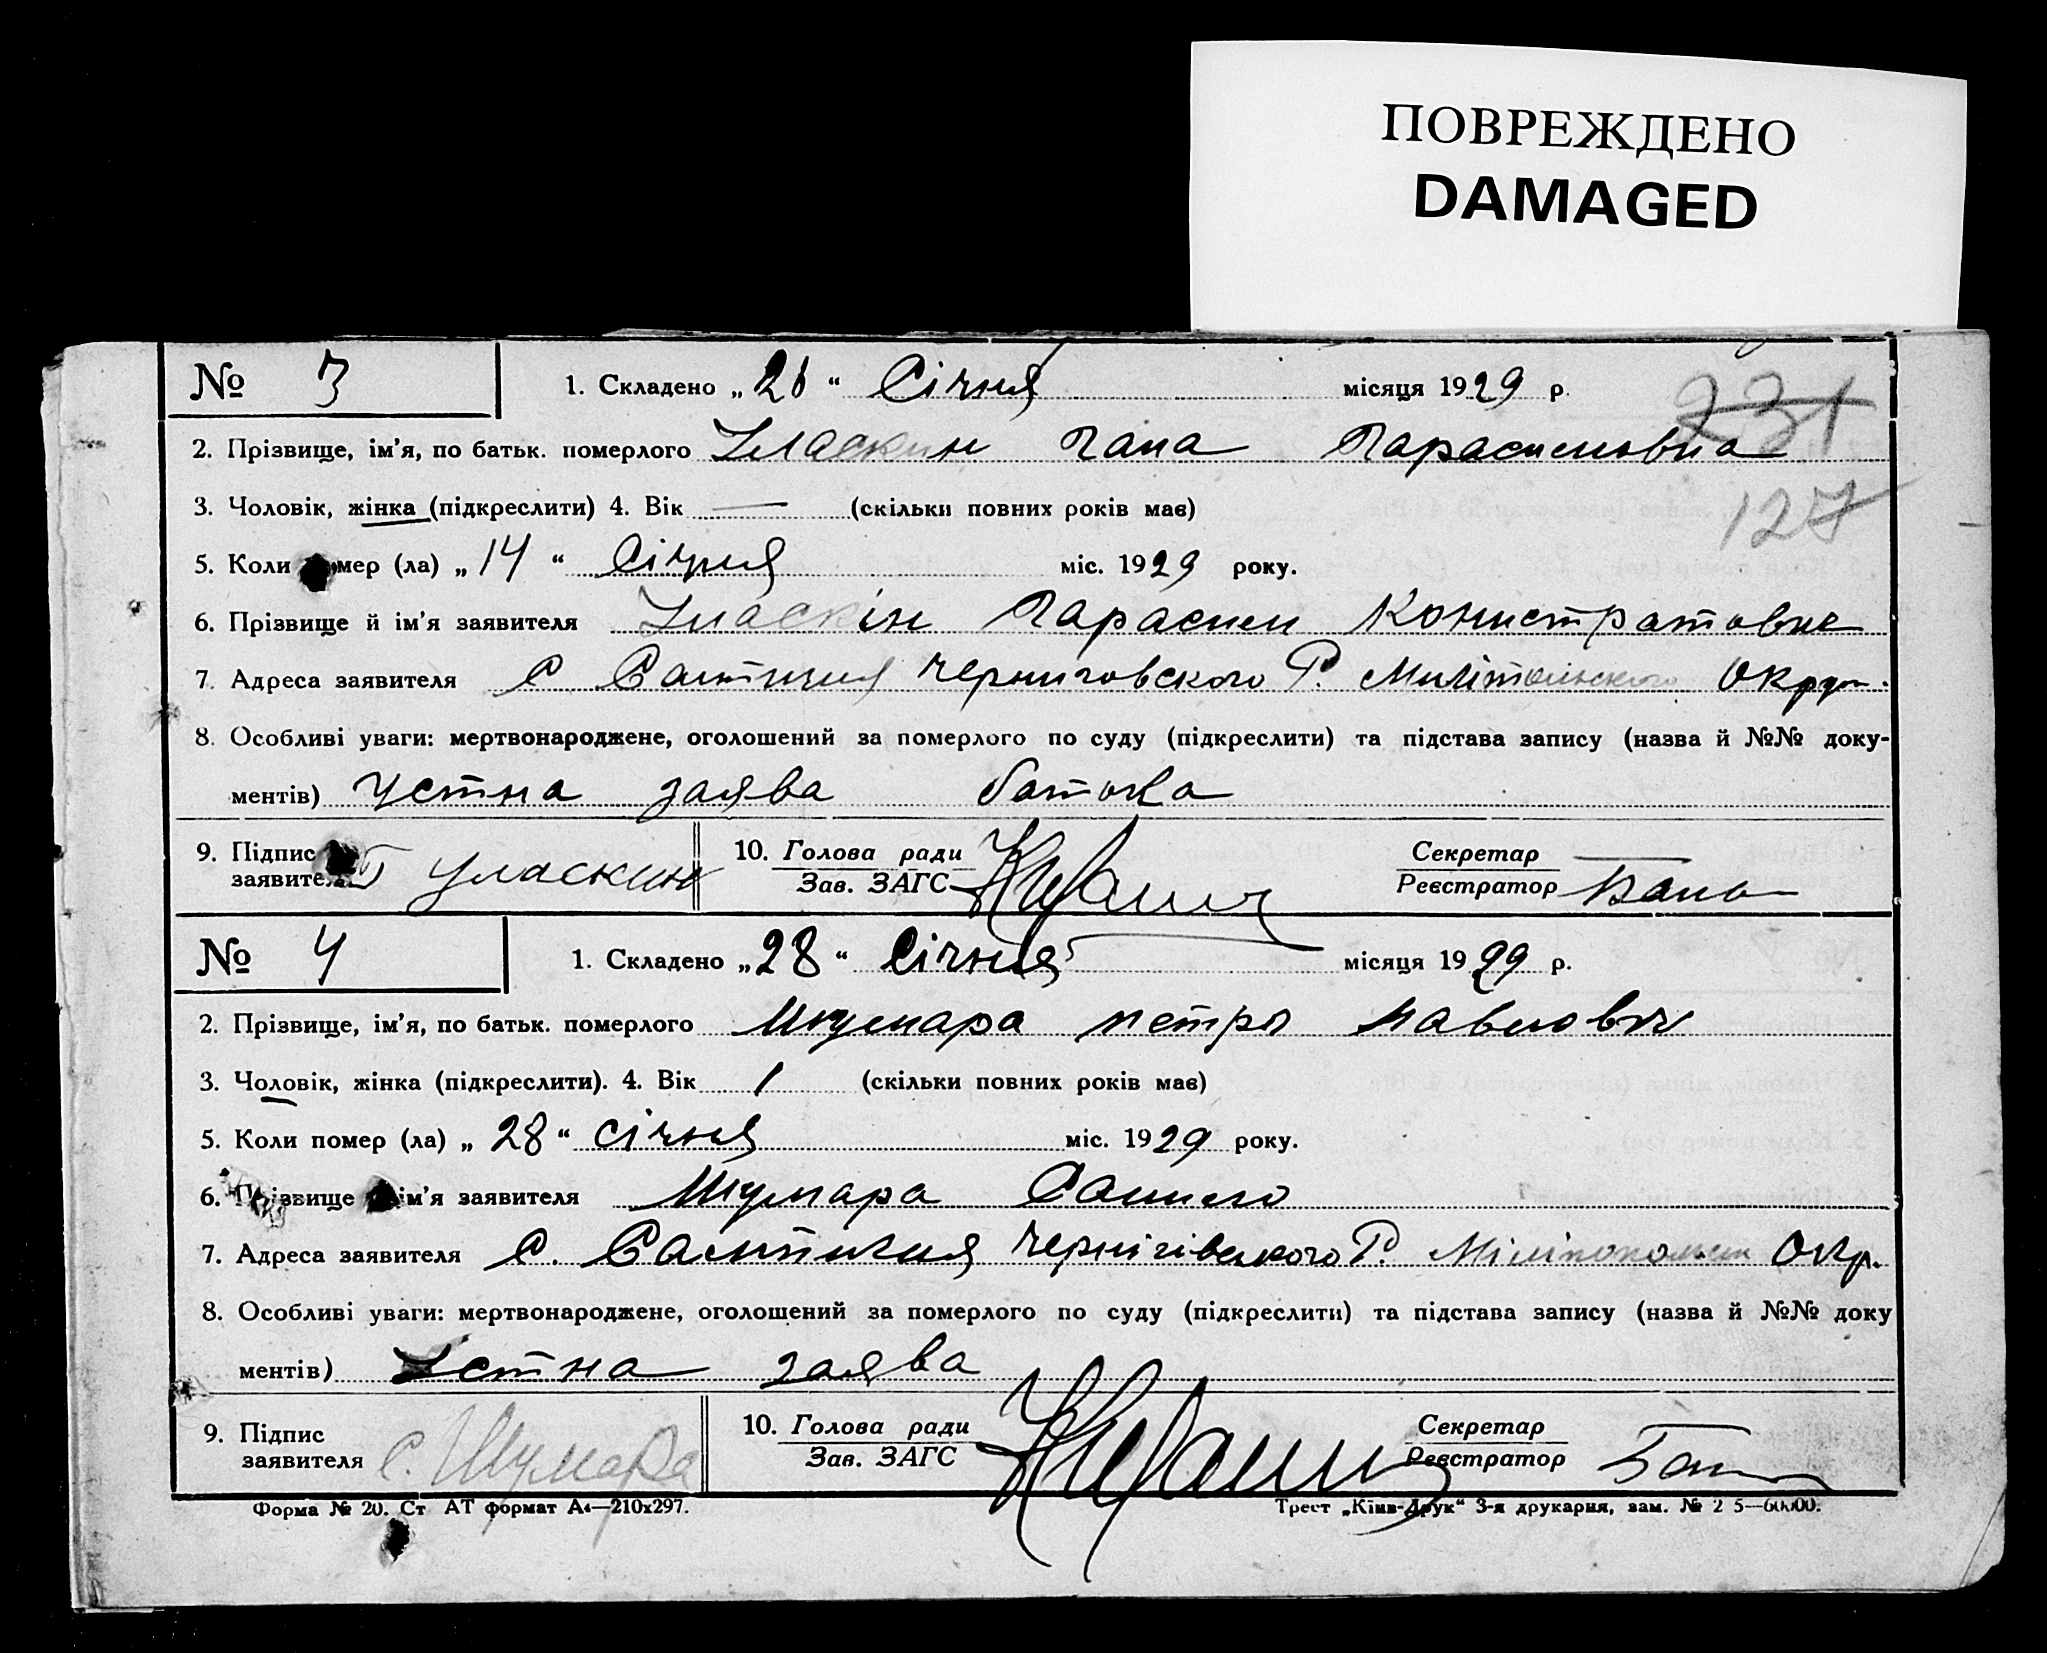 ПОВРЕЖДЕНО
DAMAGED
№ 3 1. Складено „ 26 “ Січня місяця 1929 р.
231
2. Прізвище, ім’я, по батьк. померлого Уласкин Гапа Гарасимовна
127
3. Чоловік, жінка (підкреслити) 4. Вік — (скільки повних років має)
5. Коли помер (ла) „ 14 “ Січня міс. 1929 року.
6. Прізвище й ім’я заявителя Уласкін Гарасим
7. Адреса заявителя С Салтичия Черниговского Р. Милітопольского Округ.
8. Особливі уваги: мертвонароджене, оголошений за померлого по суду (підкреслити) та підстава запису (назва й №№ доку-
ментів) Устна заява батька
9. Підпис заявителя Г Уласкин 10. Голова ради Зав. ЗАГС Секретар Реєстратор
№ 4 1. Складено „ 28 “ Січня місяця 1929 р.
2. Прізвище, ім’я, по батьк. померлого Шумара Петро Павлович
3. Чоловік, жінка (підкреслити). 4. Вік 1 (скільки повних років має)
5. Коли помер (ла) „ 28 “ січня міс. 1929 року.
6. Прізвище й ім’я заявителя Шумара
7. Адреса заявителя С. Салтичия Чернігівського Р. Окр.
8. Особливі уваги: мертвонароджене, оголошений за померлого по суду (підкреслити) та підстава запису (назва й №№ доку
ментів) Устна заява
9. Підпис заявителя С. Шумара 10. Голова ради Зав. ЗАГС Секретар Реєстратор
Форма № 20. Ст АТ формат А4—210х297. Трест „Київ-Друк“ 3-я друкарня, зам. №